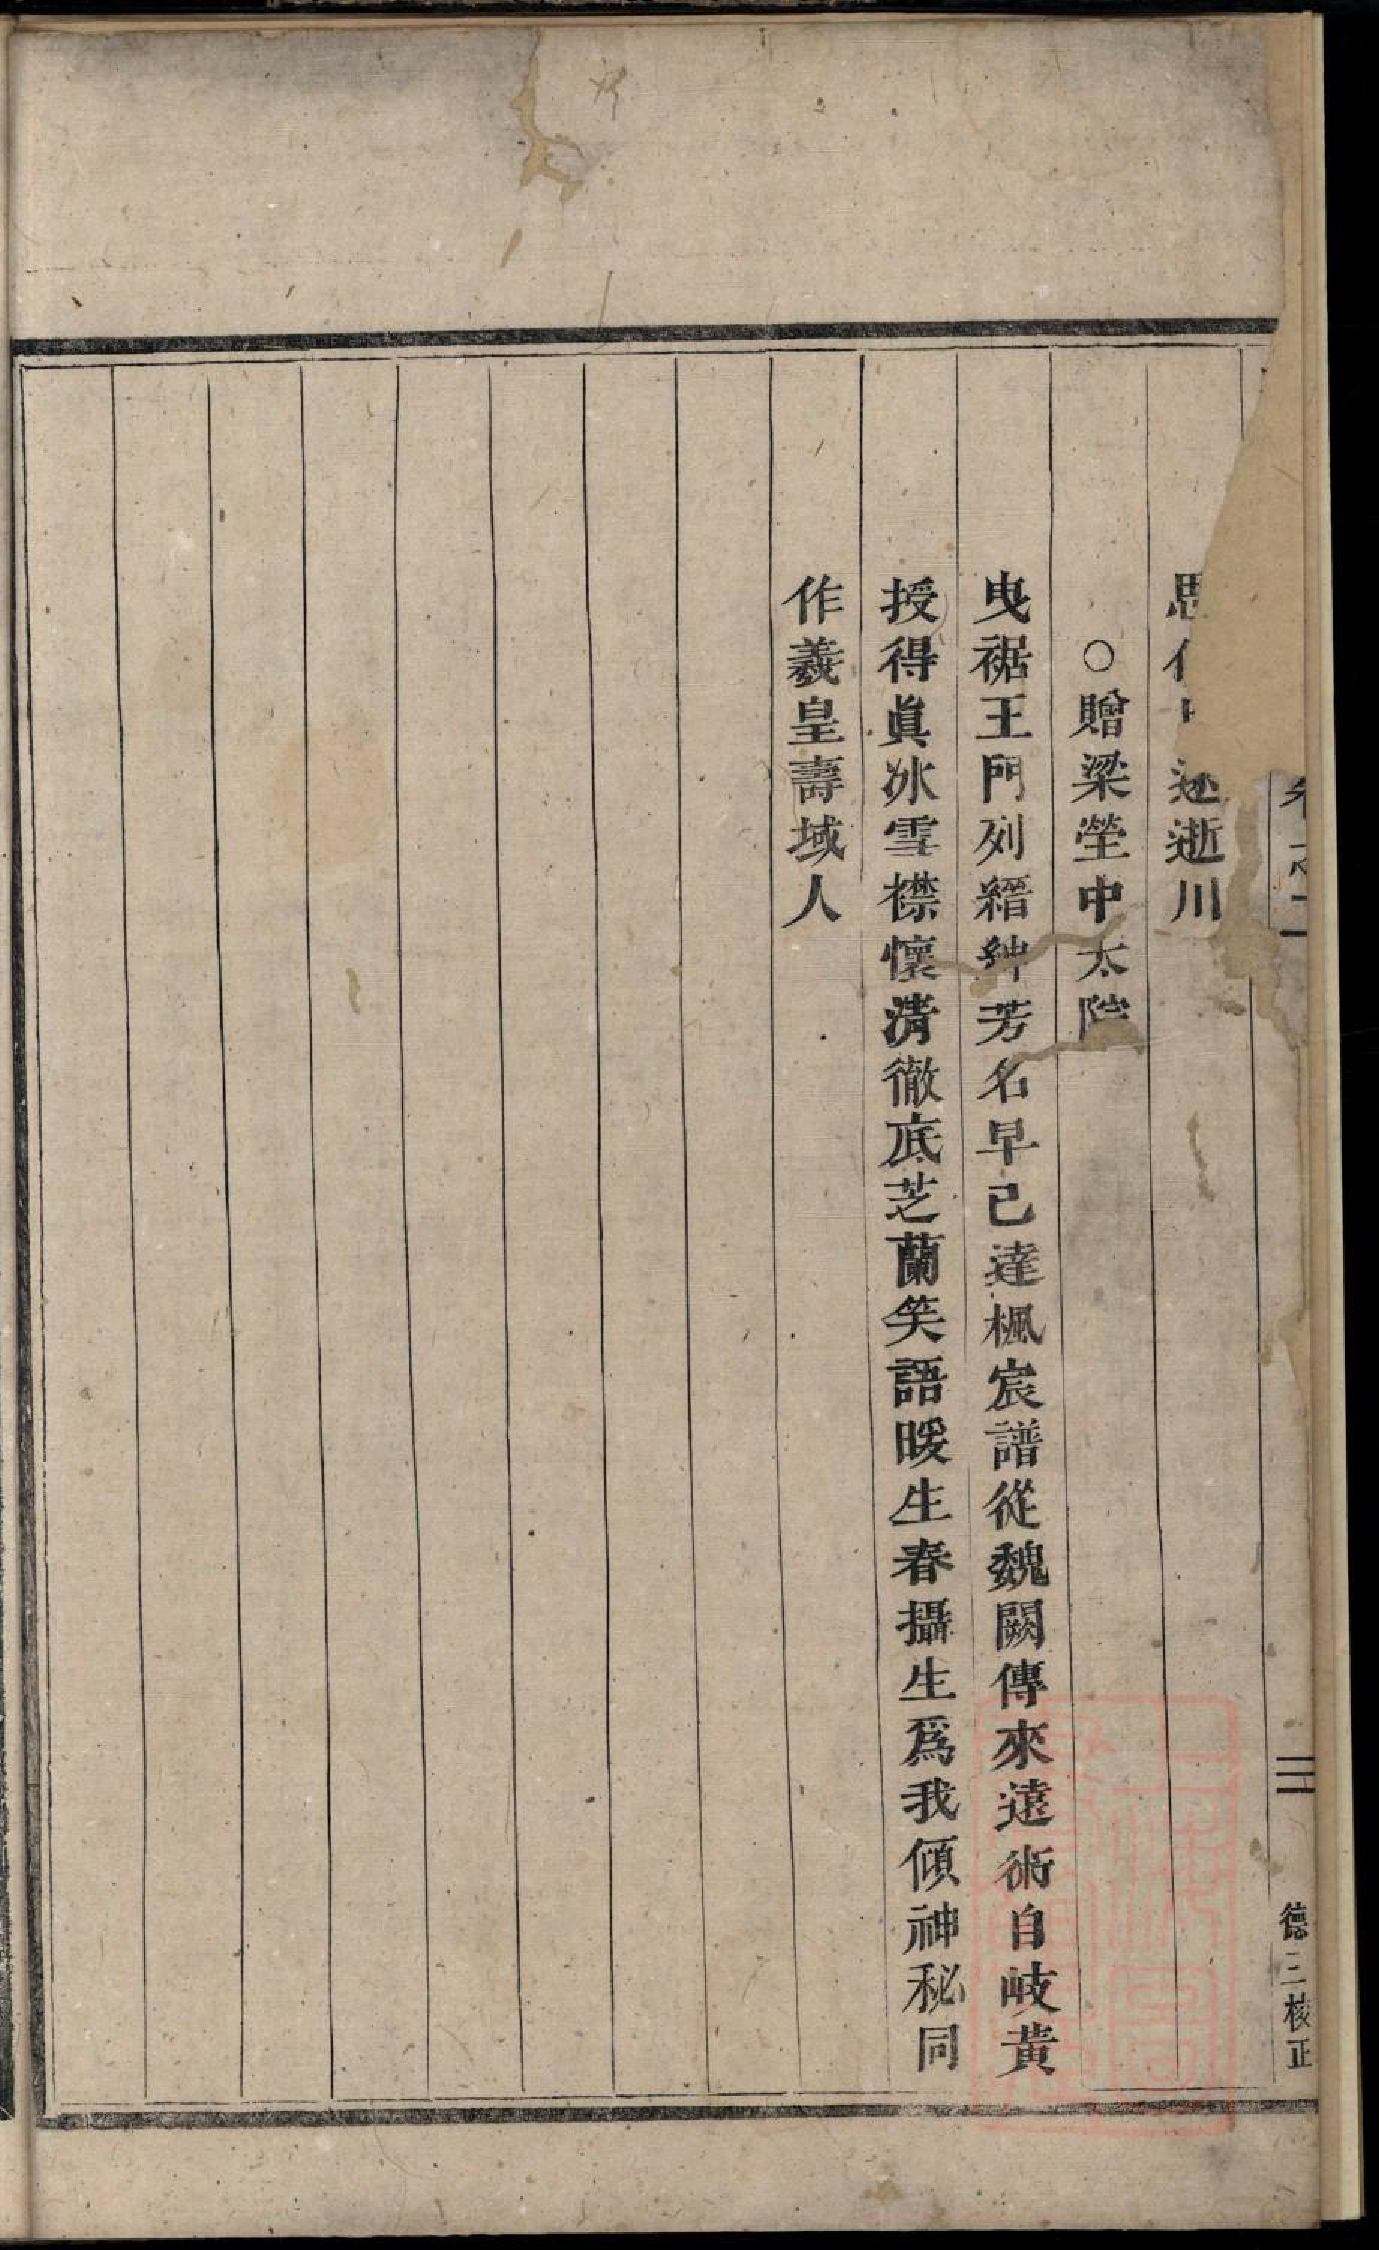 思逝川
○贈梁塋中太院
曳裾王門列縉紳芳名早已達楓宸譜從魏闕傳來遠術自岐黃
授得眞冰雪襟懷淸徹底芝蘭笑語暖生春攝生爲我傾神秘同
作羲皇壽域人
卷之二
二
德三校正